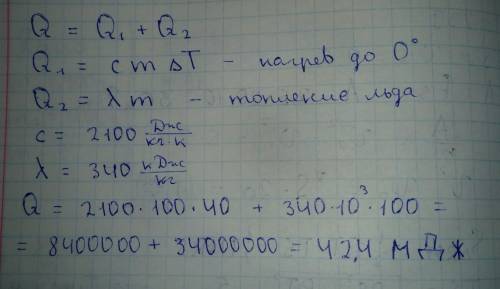 Q = Q₁ + Q₂
Q₁ = c m ΔT – нагрев до 0°
Q₂ = λ m – топление льда
c = 2100 Дж/кг·К
λ = 340 кДж/кг
Q = 2100·100·40 + 340·10³·100 =
= 8400000 + 34000000 = 42,4 МДж